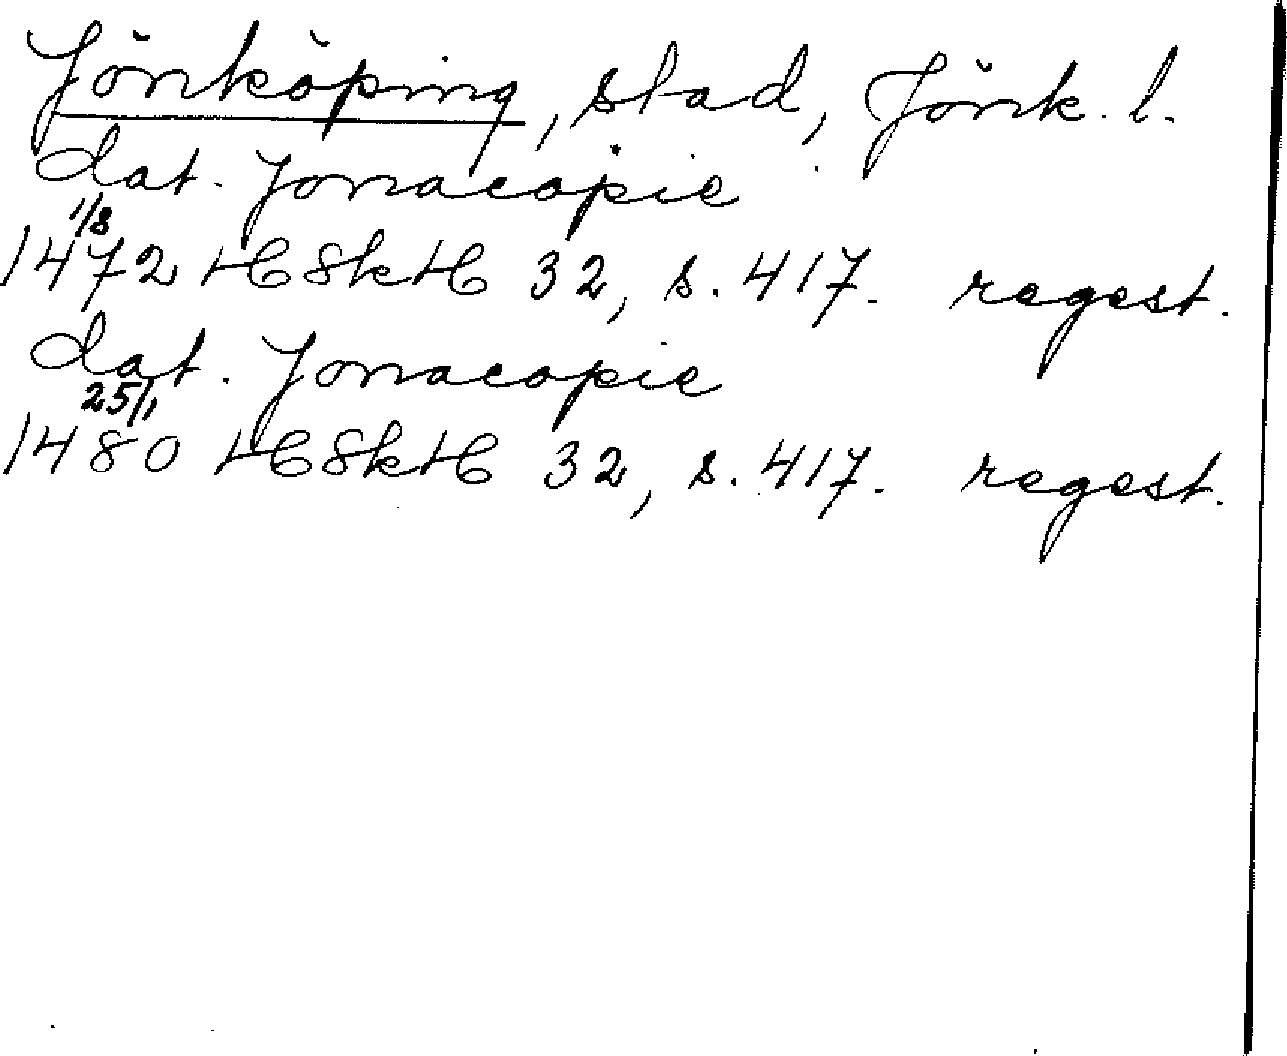 Jönköping, stad, Jönk. l.
dat. Jonacopie
1/8
1472 HSkH 32, s. 417. regest.
dat. Jonacopie
25/1
1480 HSkH 32, s. 417. regest.